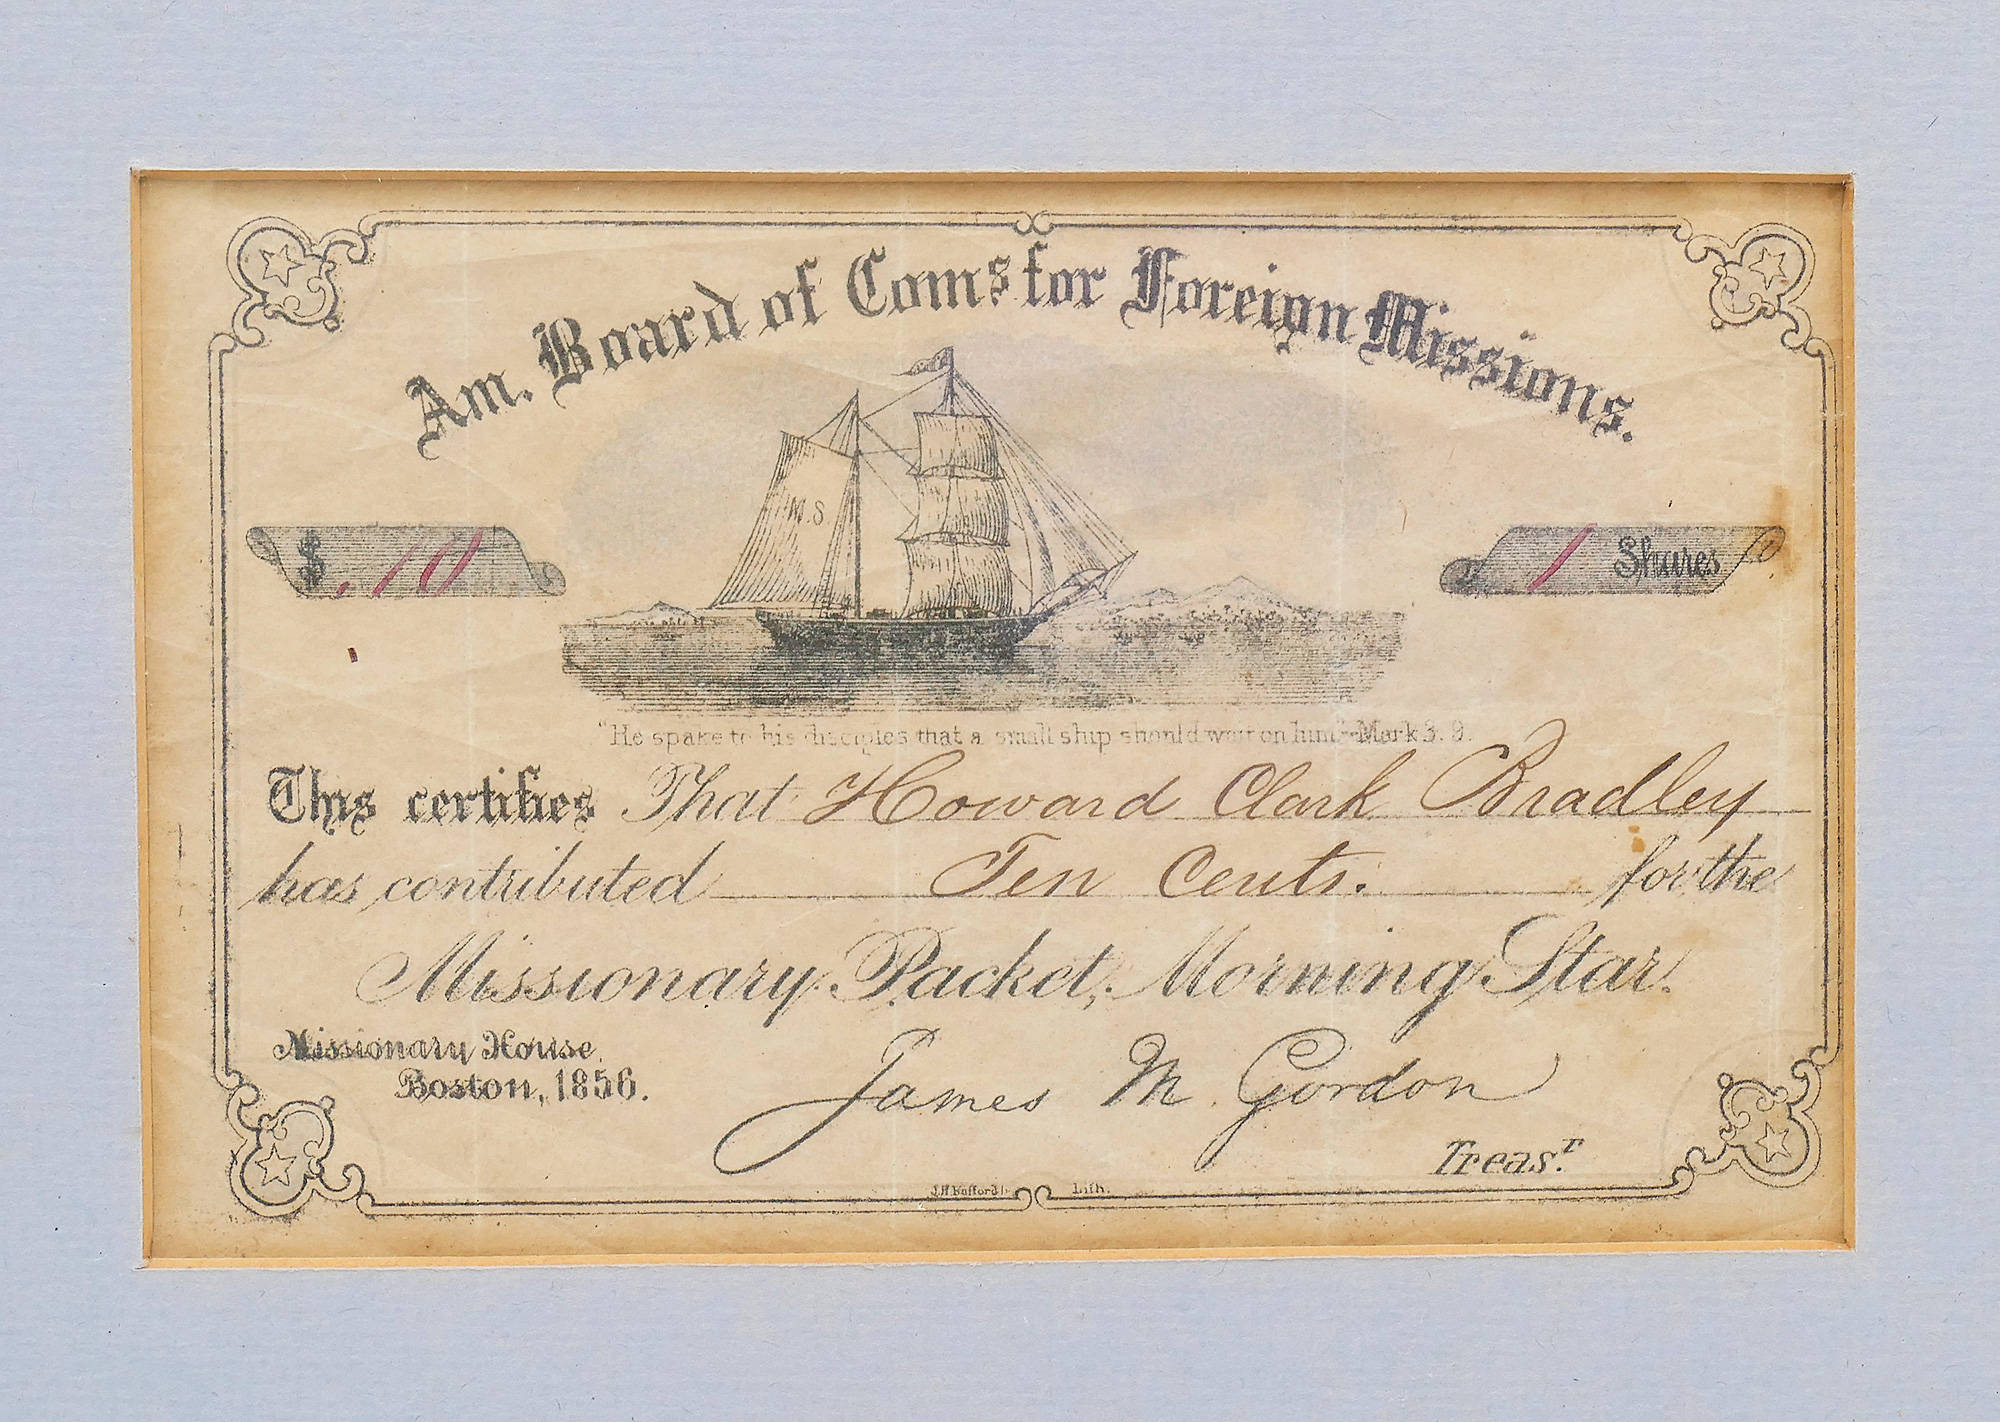 Am. Board of Coms for Foreign Missions.
M.S.
$ .10
1 Shares
"He spake to his disciples that a small ship should wait on him."-Mark 3. 9.
This certifies That Howard Clark Bradley
has contributed Ten Cents. for the
Missionary Packet, Morning Star.
Missionary House,
Boston, 1856.
James M. Gordon
Treas.r
J.H. Bufford's Lith.